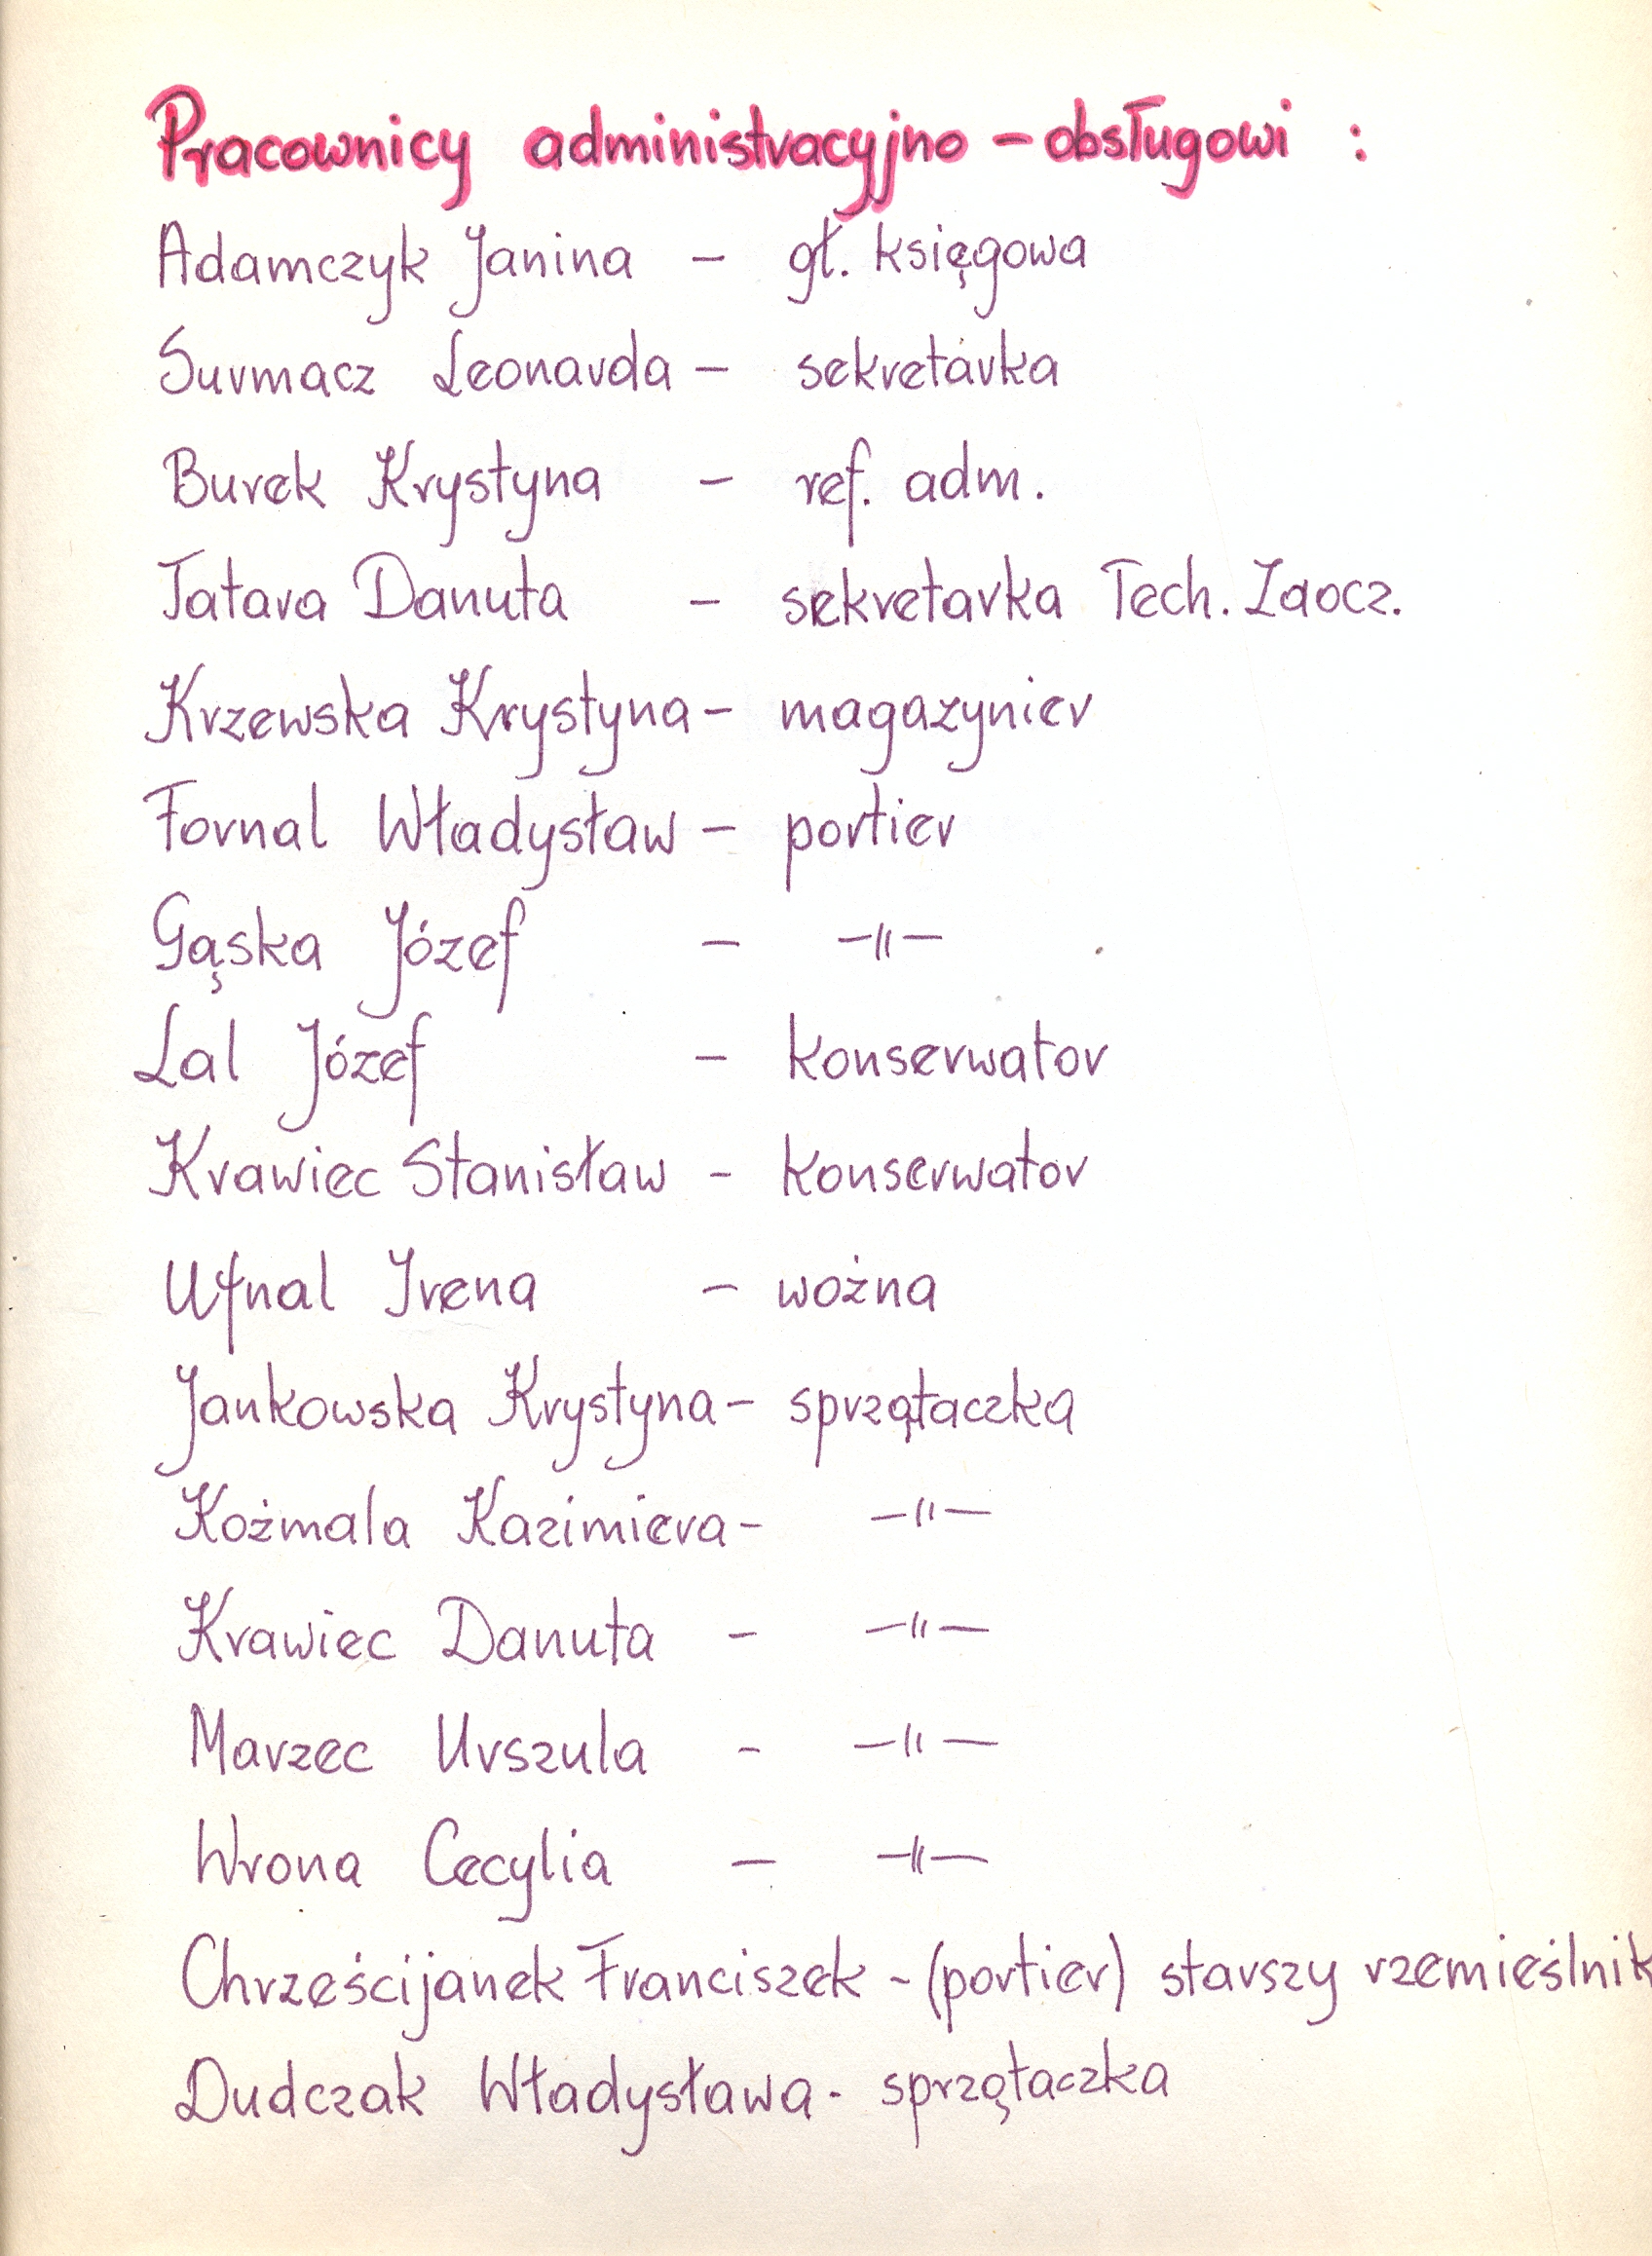 Pracownicy administracyjno - obsługowi :
Adamczyk Janina - gł. księgowa
Surmacz Leonarda - sekretarka
Burek Krystyna - ref. adm.
Tatara Danuta - sekretarka Tech. Zaocz.
Krzewska Krystyna - magazynier
Fornal Władysław - portier
Gąska Józef - -〃-
Lal Józef - konserwator
Krawiec Stanisław - konserwator
Ufnal Irena - woźna
Jankowska Krystyna - sprzątaczka
Koźmala Kazimiera - -〃-
Krawiec Danuta - -〃-
Marzec Urszula - -〃-
Wrona Cecylia - -〃-
Chrześcijanek Franciszek - (portier) starszy rzemieślnik
Dudczak Władysława - sprzątaczka